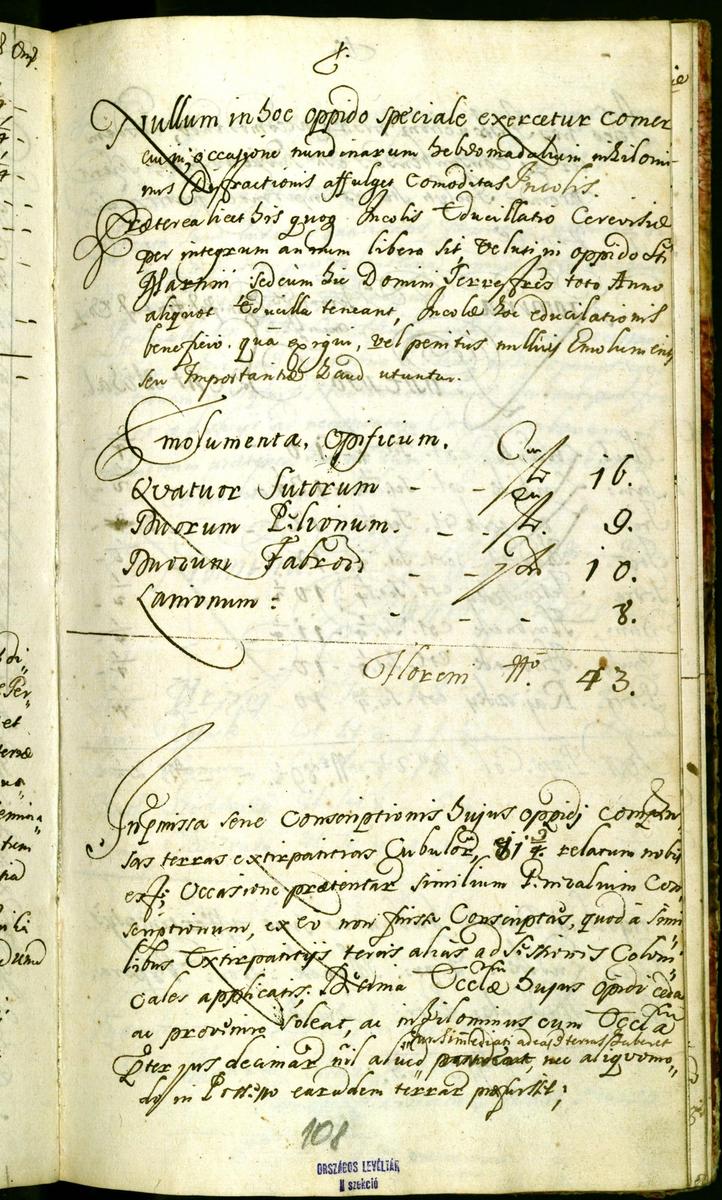 Nullum in hoc oppido speciale exercetur comer
cium, occasione nundinarum hebdomadalium nihilomi-
nus Distractionis affulget Comoditas Incolis.
Præterea licet his quoq Incolis Educillatio Cerevisiæ
per integrum annum libera sit, veluti in oppido Sti
Martini sed cum hic Domini Terrestres toto Anno
aliquot Educilla teneant, Incolæ hoc educilationis
beneficio quã exigui, vel penitus nullius Emolumenti
seu Importantiæ haud utuntur.
Emolumenta, Opificum.
Quatuor Sutorum - - 16.
Duorum Pelionum. - - 9.
Duorum Fabrorũ - - 10.
Lanionum: - - - - 8.
Floreni 43.
Inpmissa serie Conscriptionis hujus oppidi
sas terras extirpatitias Cubulorũ, 81 3/4. relatum nobis
est; Occasione prætentarũ similium Conscriptionum
scriptionum, ex eo non fuisse Conscriptas, quod a simi
libus Extirpatitijs terris alias ad Colonicales
cales applicatis; Decima Eccliæ hujus opidi cedat
ac provenire soleat, ac nihilominus cum Ecclia
præter jus decimarũ nil aliud nec aliquomo-
do in earundem terrarũ præfuisset;
108
ORSZÁGOS LEVÉLTÁR
II szekció